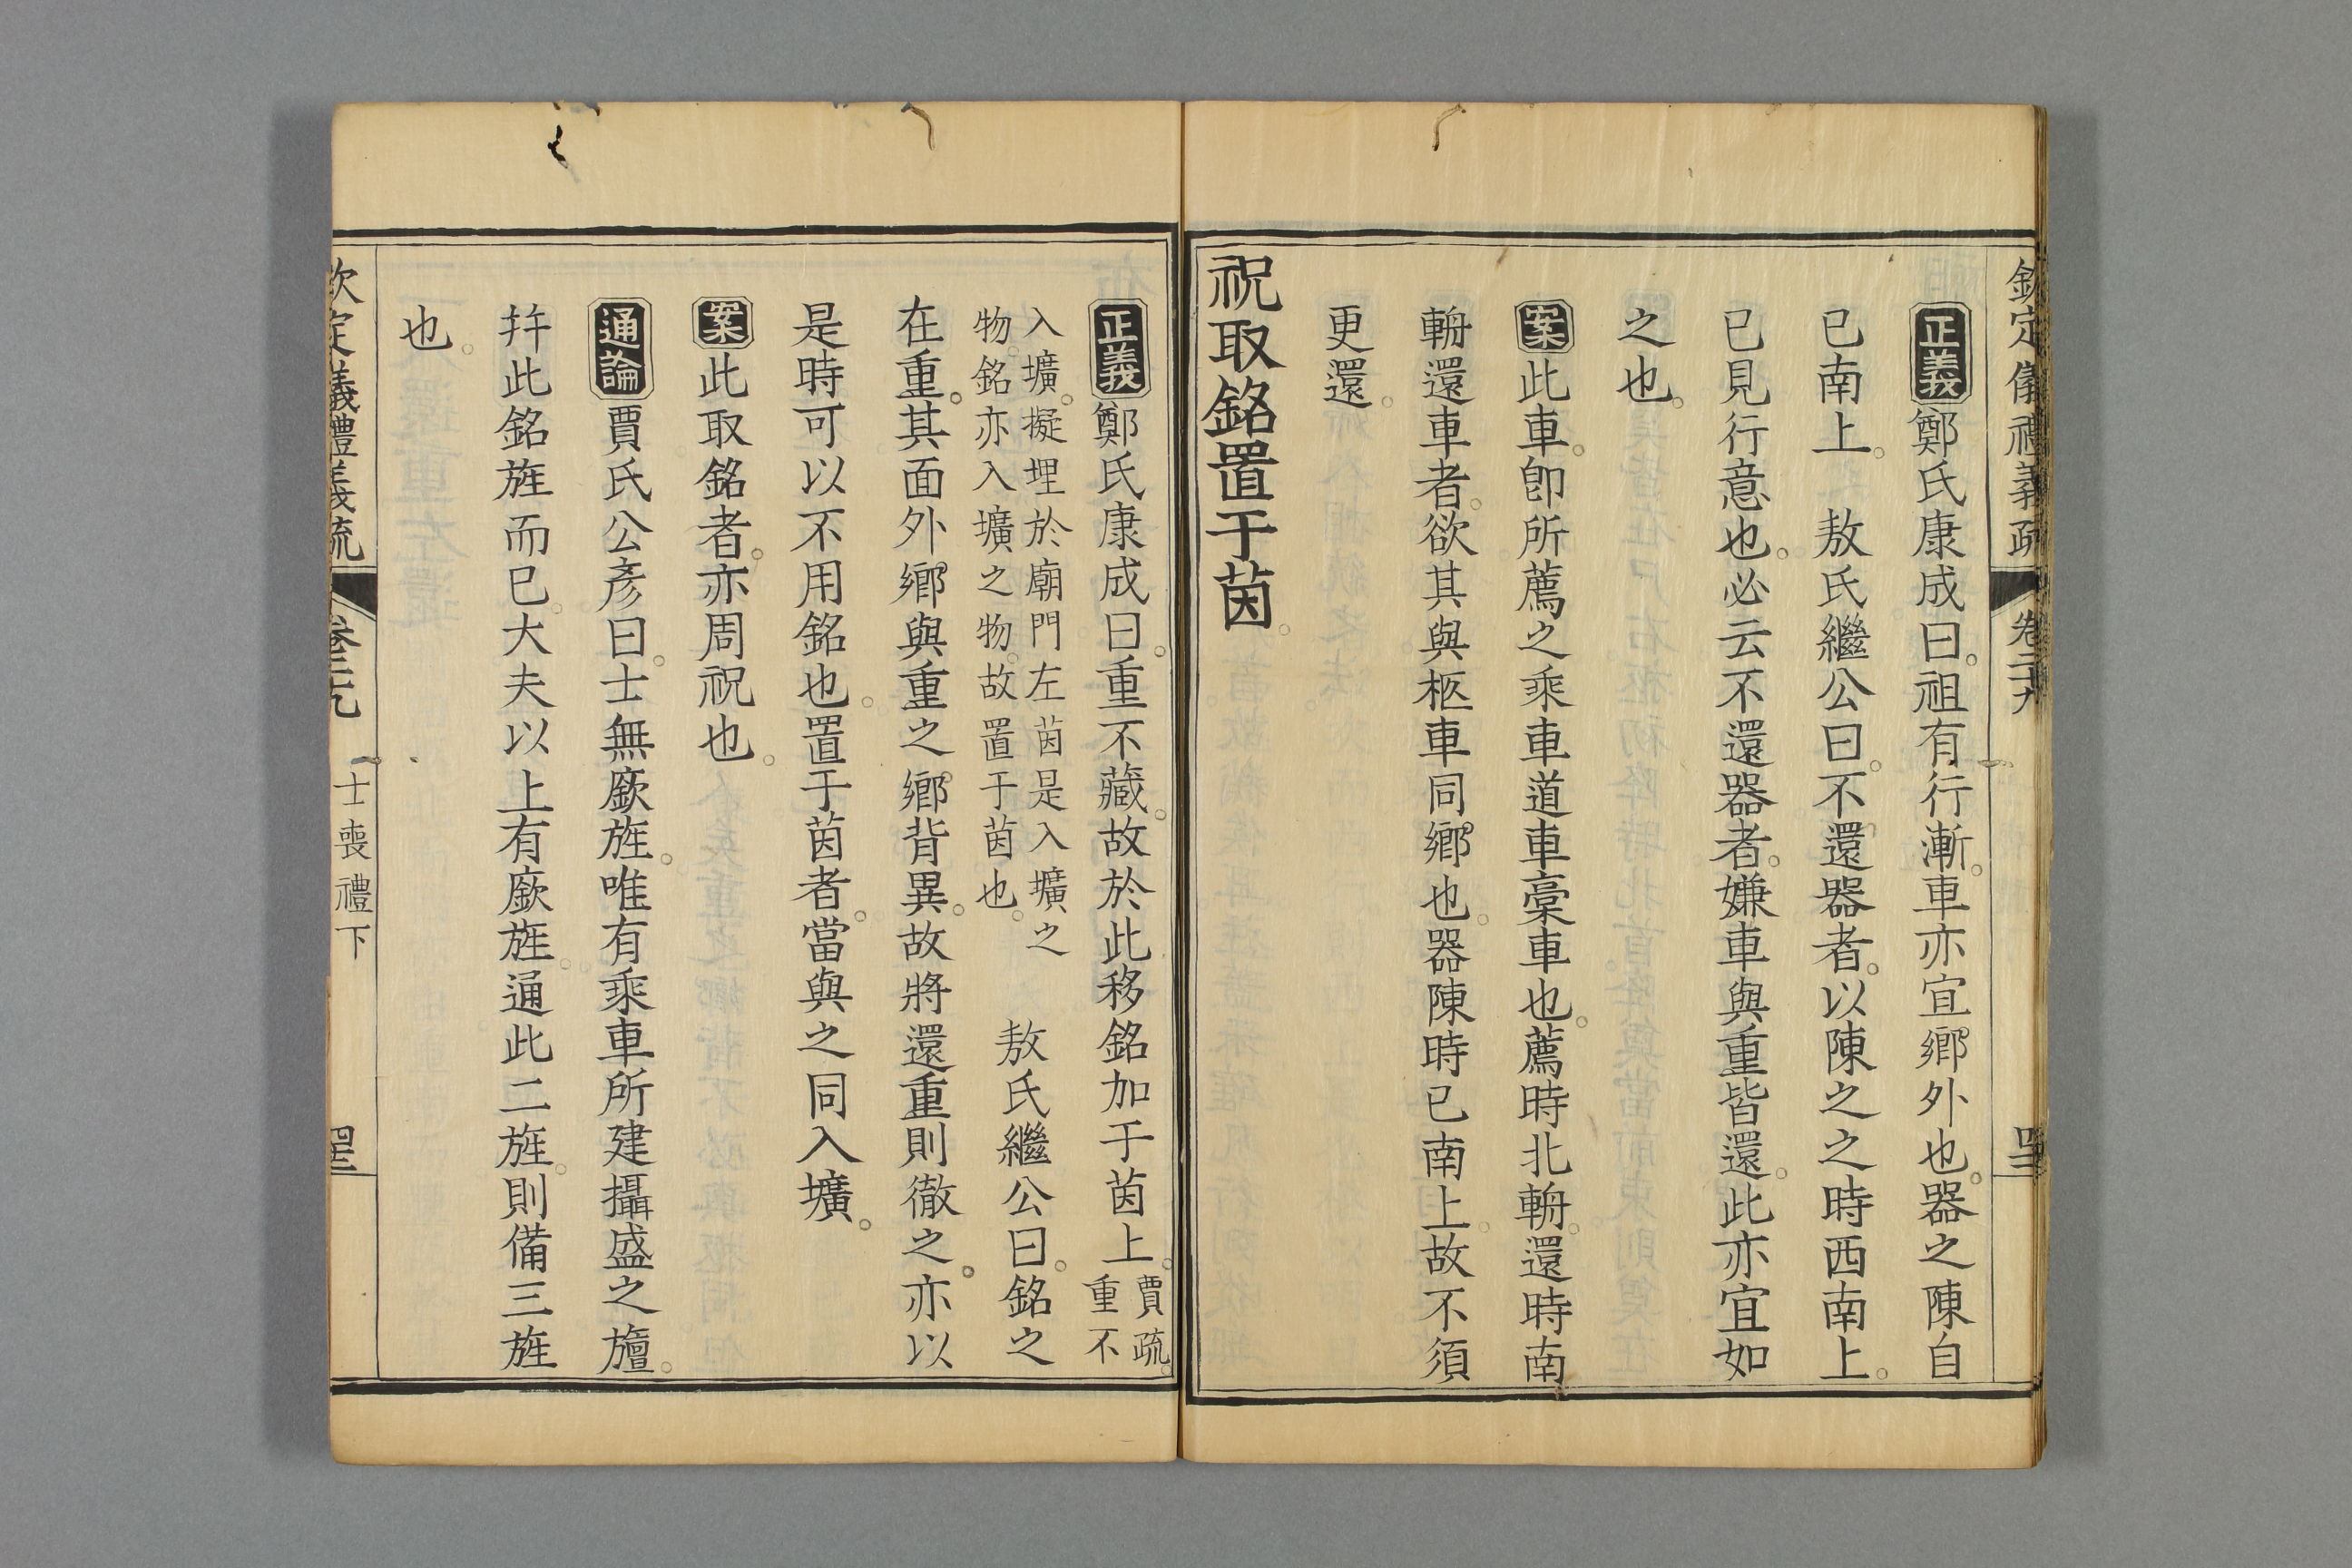 欽定儀禮義疏 卷二十九
正義鄭氏康成曰祖有行漸車亦宜鄉外也器之陳自
已南上 敖氏繼公曰不還器者以陳之之時西南上
已見行意也必云不還器者嫌車與重皆還此亦宜如
之也
案此車卽所薦之乘車道車稾車也薦時北輈還時南
輈還車者欲其與柩車同鄉也器陳時已南上故不須
更還
祝取銘置于茵
正義鄭氏康成曰重不藏故於此移銘加于茵上賈疏重不
入壙擬埋於廟門左茵是入壙之
物銘亦入壙之物故置于茵也 敖氏繼公曰銘之
在重其面外鄉與重之鄉背異故將還重則徹之亦以
是時可以不用銘也置于茵者當與之同入壙
案此取銘者亦周祝也
通論賈氏公彥曰士無廞旌唯有乘車所建攝盛之旜
幷此銘旌而已大夫以上有廞旌通此二旌則備三旌
也
欽定儀禮義疏 卷二十九 士喪禮下